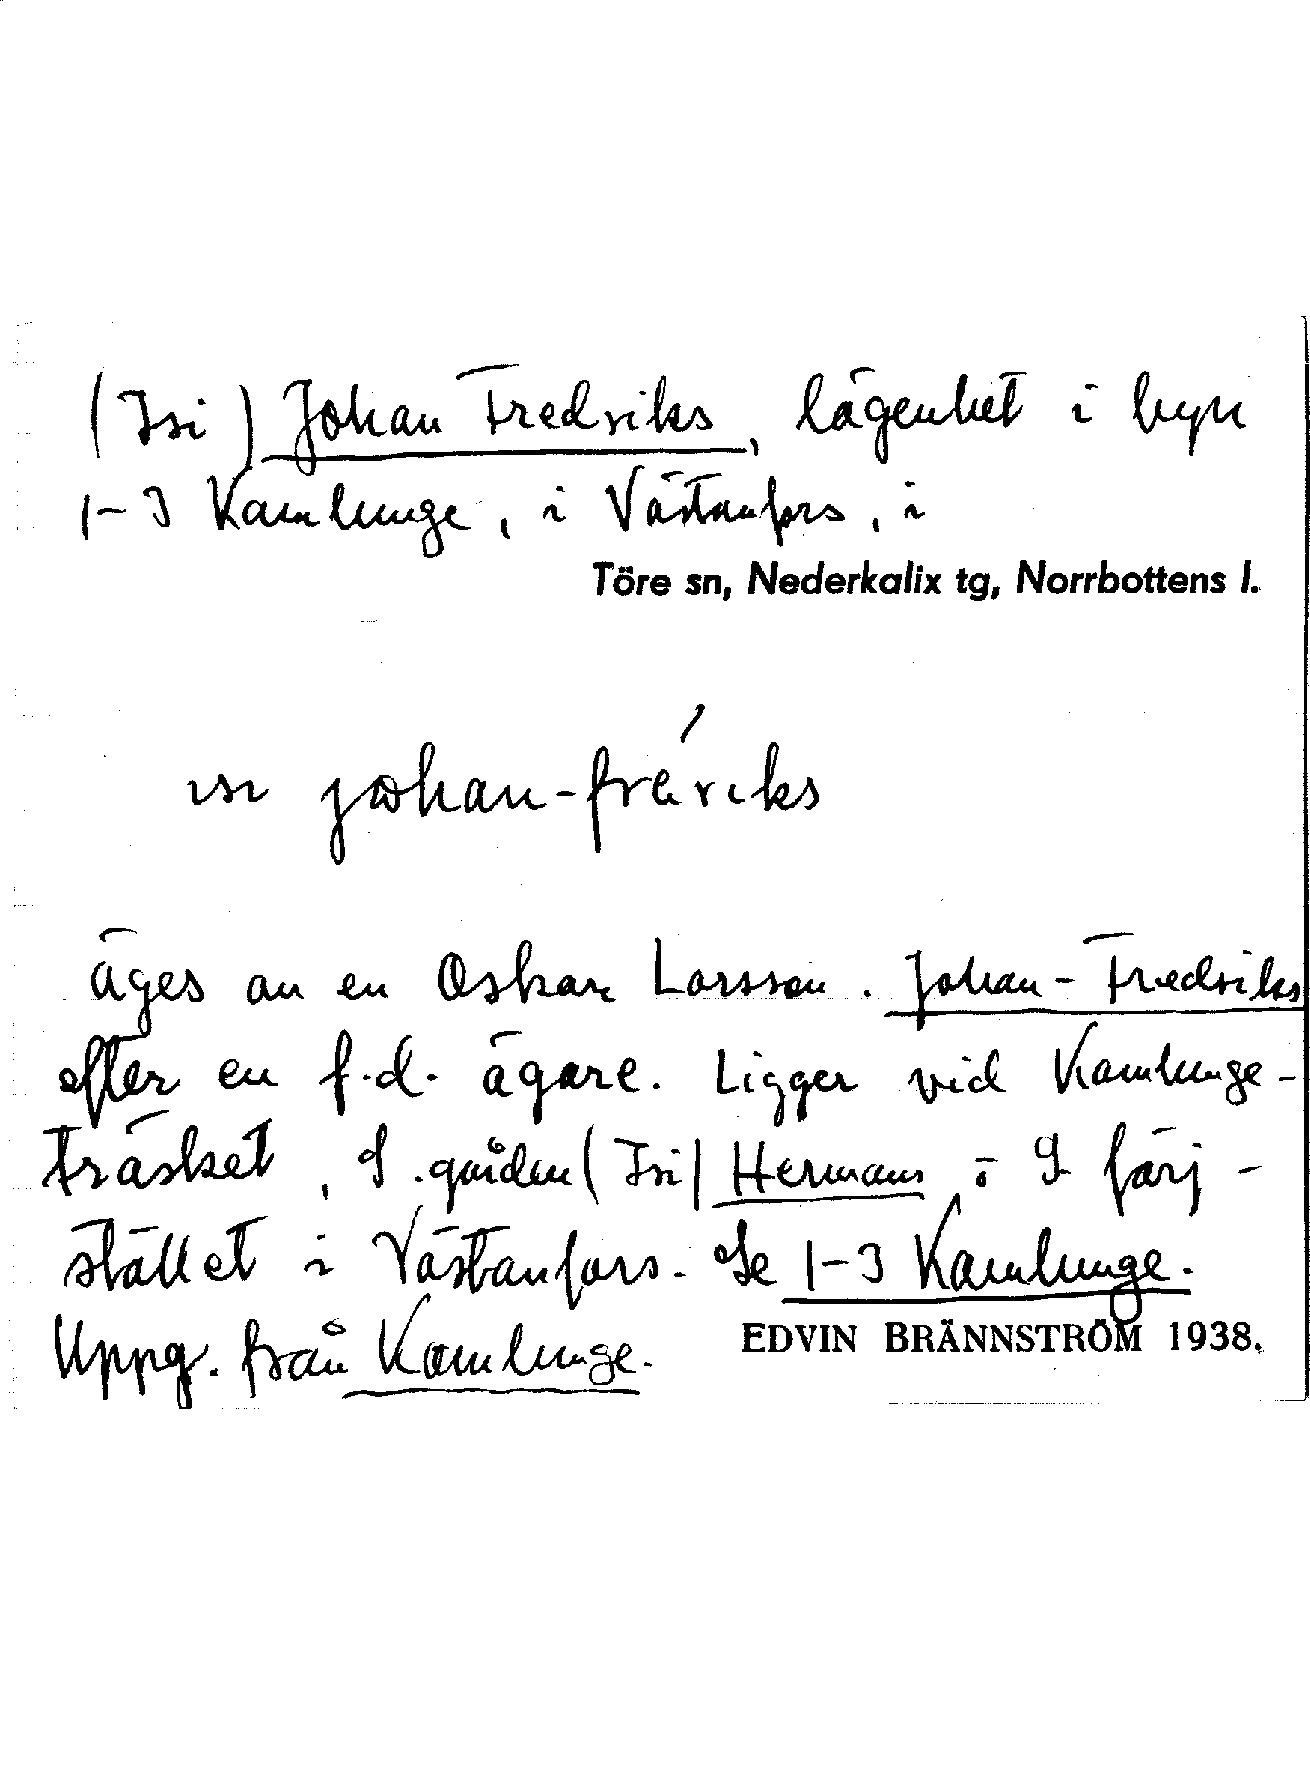 (Isi) Johan Fredriks, lägenhet i byn
1-3 Kamlunge, i Västanfors, i
Töre sn, Nederkalix tg, Norrbottens l.
ɪsɪ johan-frériks
äges av en Oskar Larsson. Johan-Fredriks
efter en f.d. ägare. Ligger vid Kamlunge-
träsket, S. gården (Isi) Hermans o färj-
stället i Västanfors. Se 1-3 Kamlunge.
Uppg. från Kamlunge. EDVIN BRÄNNSTRÖM 1938.